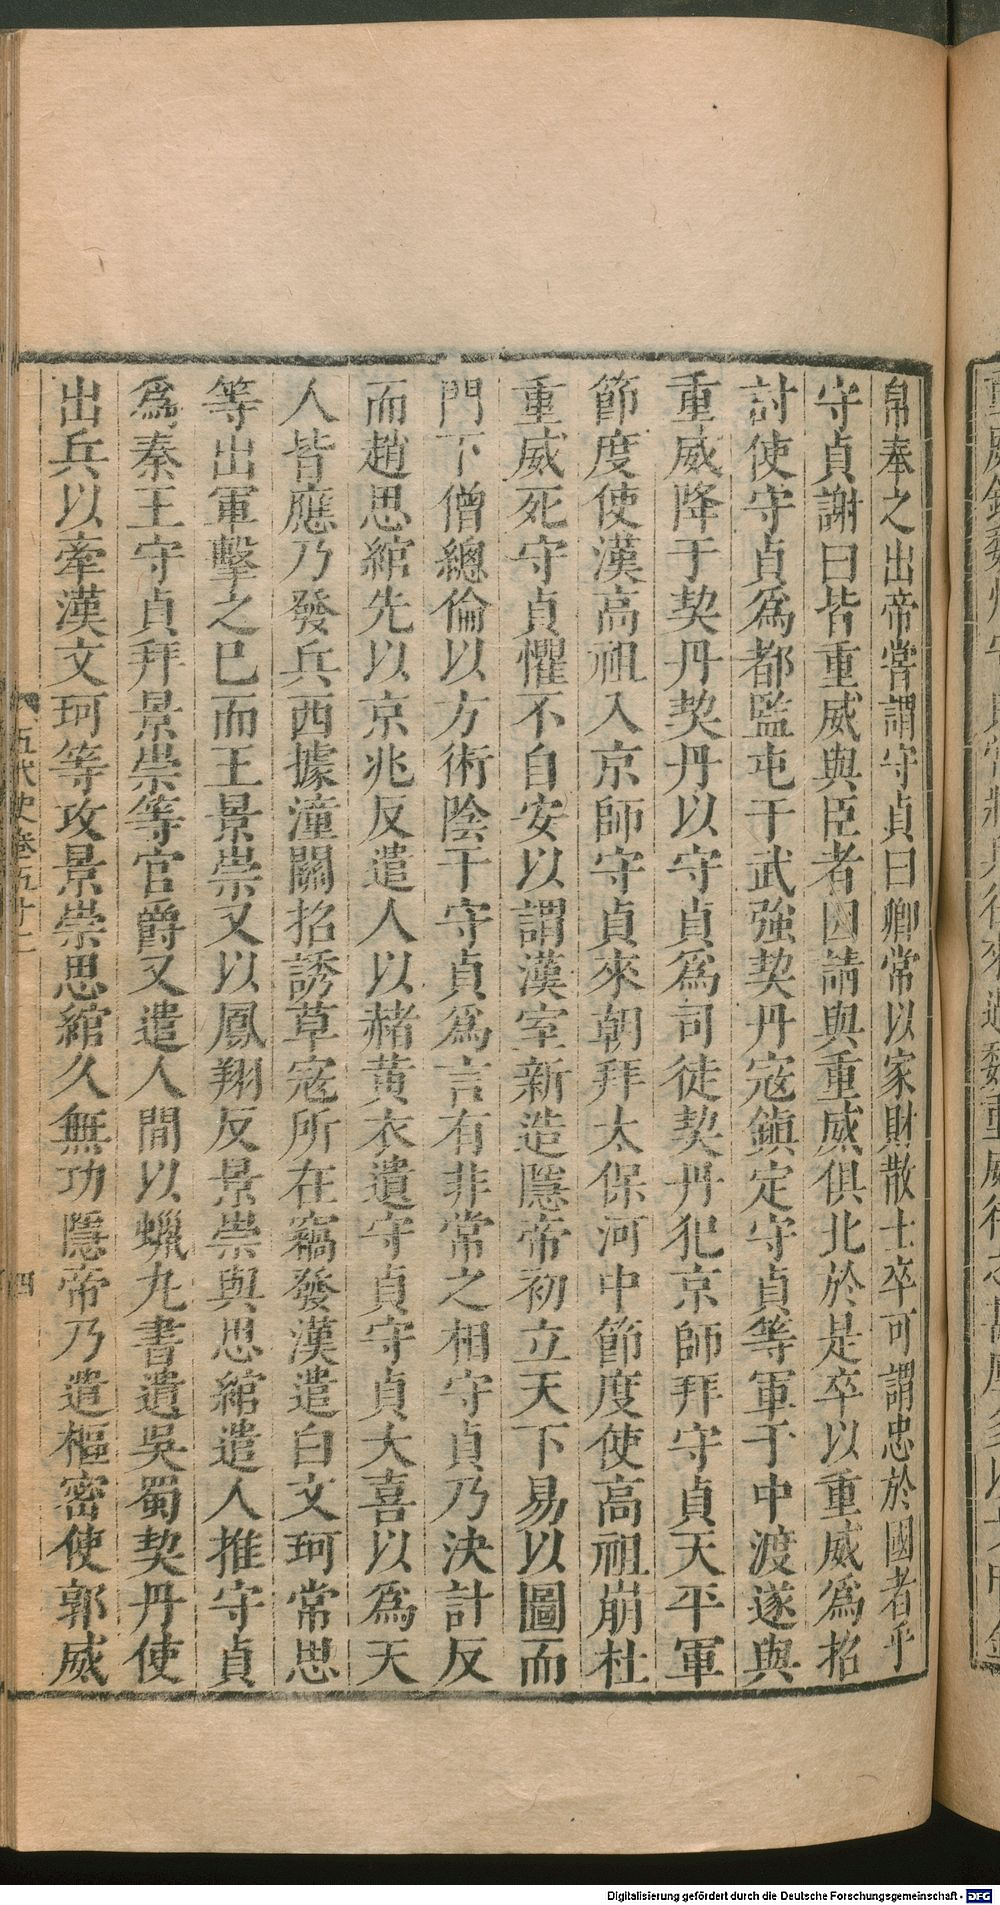 帛奉之出帝嘗謂守貞曰卿常以家財散士卒可謂忠於國者乎
守貞謝曰皆重威與臣者因請與重威俱北於是卒以重威爲招
討使守貞爲都監屯于武強契丹寇鎮定守貞等軍于中渡遂與
重威降于契丹契丹以守貞爲司徒契丹犯京師拜守貞天平軍
節度使漢高祖入京師守貞來朝拜太保河中節度使高祖崩杜
重威死守貞懼不自安以謂漢室新造隱帝初立天下易以圖而
門下僧總倫以方術陰干守貞爲言有非常之相守貞乃決計反
而趙思綰先以京兆反遣人以赭黃衣遺守貞守貞大喜以爲天
人皆應乃發兵西據潼關招誘草寇所在竊發漢遣白文珂常思
等出軍擊之已而王景崇又以鳳翔反景崇與思綰遣人推守貞
爲秦王守貞拜景崇等官爵又遣人間以蠟丸書遺吳蜀契丹使
出兵以牽漢文珂等攻景崇思綰久無功隱帝乃遣樞密使郭威
五代史卷五十二
四
Digitalisierung gefördert durch die Deutsche Forschungsgemeinschaft - DFG